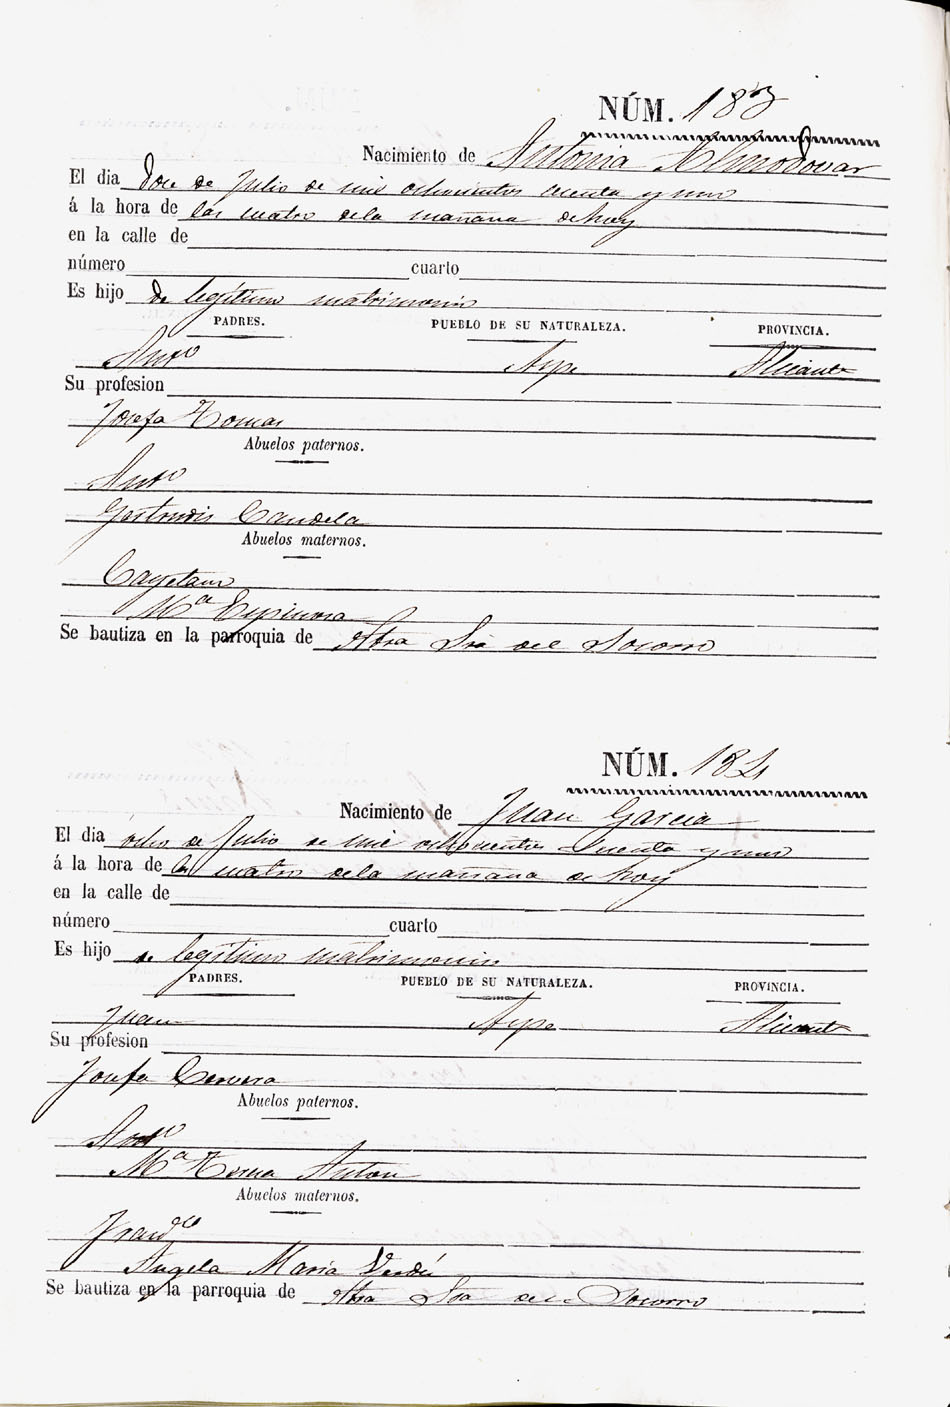 NÚM. 183
Nacimiento de Antonia Almodovar
El dia doce de Julio de mil ochocientos cuenta y uno
á la hora de las cuatro de la mañana de hoy
en la calle de
número cuarto
Es hijo de legitimo matrimonio
PADRES. PUEBLO DE SU NATURALEZA. PROVINCIA.
Antº Aspe Alicante
Su profesion
Josefa Tomas
Abuelos paternos.
Antº
Gertrudis Candela
Abuelos maternos.
Cayetano
Mª Espinosa
Se bautiza en la parroquia de Ntra Sra del Socorro
NÚM. 184
Nacimiento de Juan Garcia
El dia ocho de Julio de mil ochocientos cuenta y uno
á la hora de las cuatro de la mañana de hoy
en la calle de
número cuarto
Es hijo de legitimo matrimonio
PADRES. PUEBLO DE SU NATURALEZA. PROVINCIA.
Juan Aspe Alicante
Su profesion
Josefa Cervera
Abuelos paternos.
Antº
Mª Teresa Anton
Abuelos maternos.
Francº
Angela Maria Verdú
Se bautiza en la parroquia de Ntra Sra del Socorro